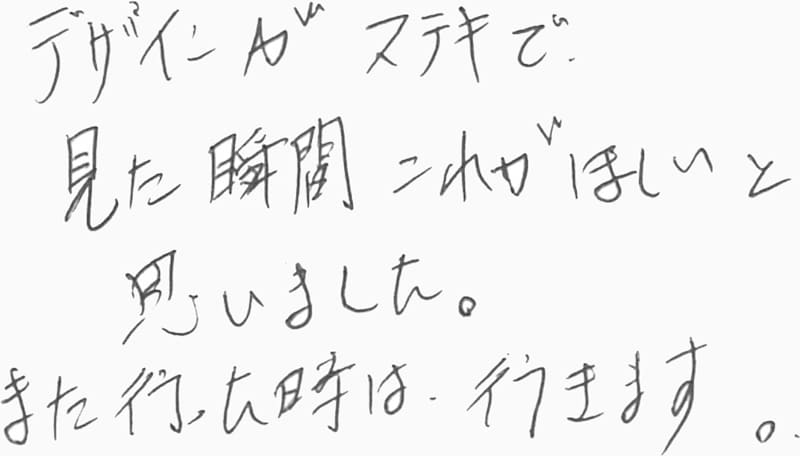 デザインが ステキで
見た瞬間 これがほしいと
思いました。
また行った時は 行きます。